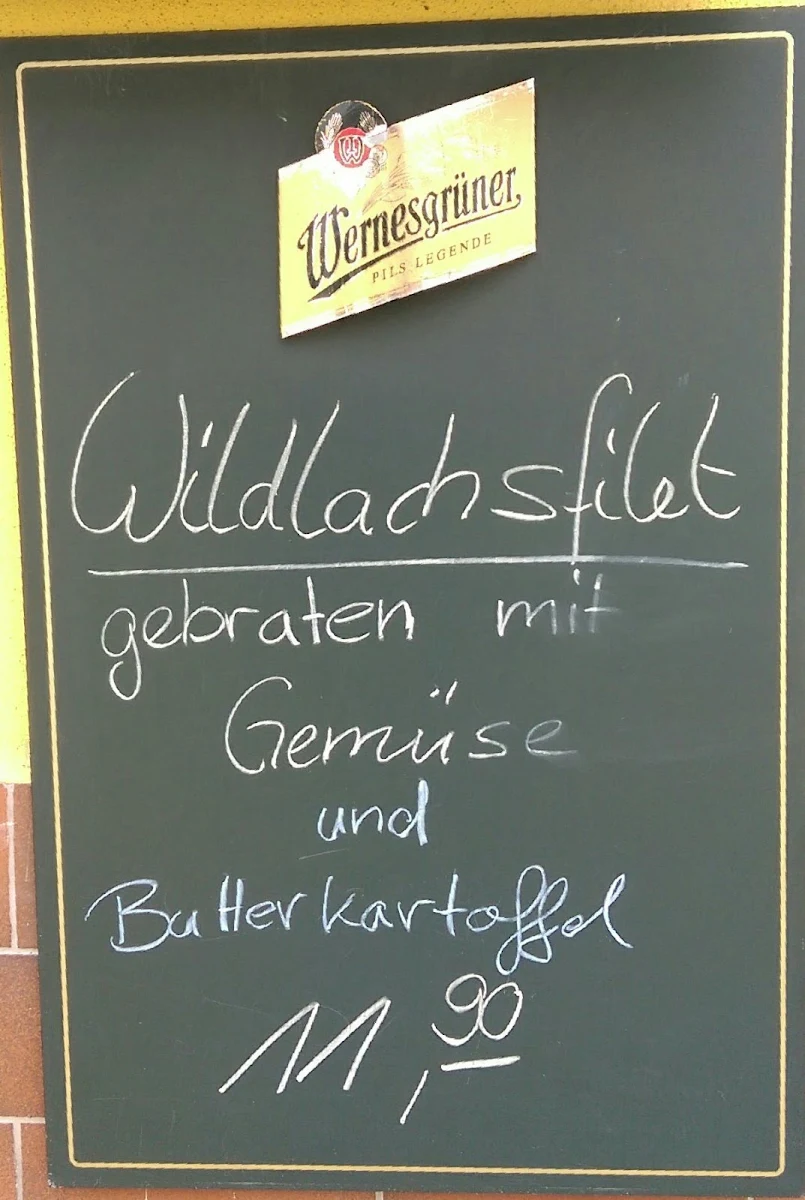 W
Wernesgrüner
PILS LEGENDE
Wildlachsfilet
gebraten mit
Gemüse
und
Butterkartoffel
11,90